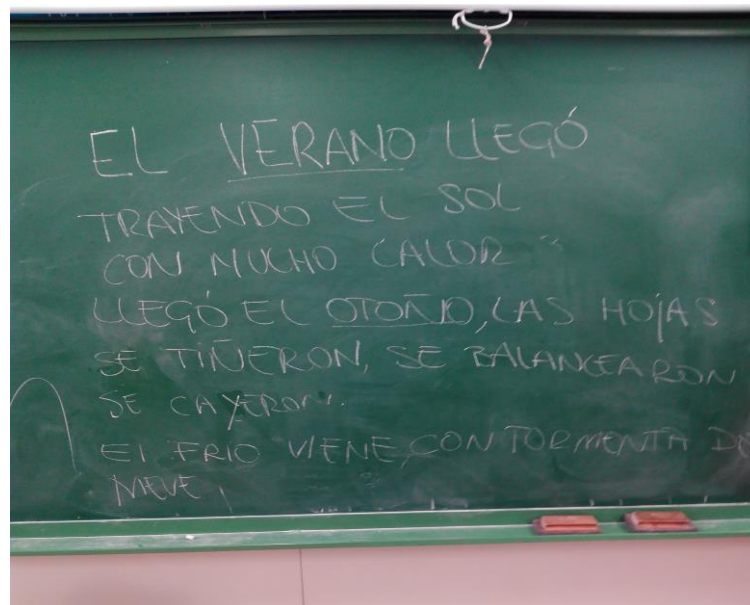 EL VERANO LLEGÓ
TRAYENDO EL SOL
CON MUCHO CALOR
LLEGÓ EL OTOÑO, LAS HOJAS
SE TIÑERON, SE BALANCEARON
SE CAYERON.
El FRIO VIENE, CON TORMENTA DE
NIEVE,